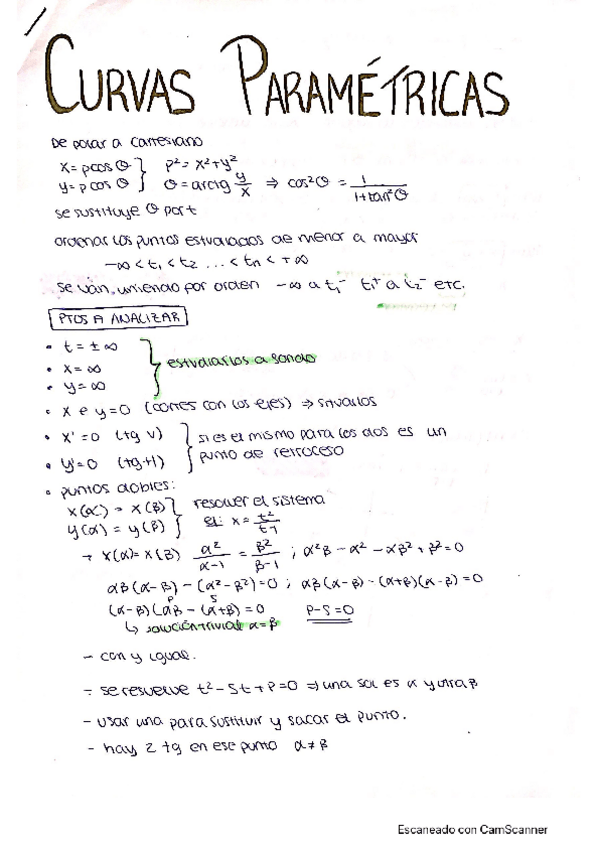 CURVAS PARAMÉTRICAS
De polar a cartesiano
x = ρcos θ } ρ² = x²+y²
y = ρcos θ } θ = arctg y/x ⇒ cos²θ = 1/(1+tan²θ)
se sustituye θ por t
ordenar los puntos estudiados de menor a mayor
-∞ < t₁ < t₂ ... < tn < +∞
se van uniendo por orden -∞ a t₁⁻ t₁⁺ a t₂⁻ etc.
PTOS A ANALIZAR
• t = ± ∞
• x = ∞ } estudiarlos a fondo
• y = ∞
• x e y = 0 (cortes con los ejes) ⇒ situarlos
• x' = 0 (tg v) } si es el mismo para los dos es un
• y' = 0 (tg H) } punto de retroceso
• puntos dobles:
x(α) = x(β) } resolver el sistema
y(α) = y(β) } ej: x = t²/(t-1)
→ x(α) = x(β) α²/(α-1) = β²/(β-1) ; α²β - α² - αβ² + β² = 0
αβ(α-β) - (α²-β²) = 0 ; αβ(α-β) - (α+β)(α-β) = 0
P S
(α-β)(αβ - (α+β)) = 0 P-S = 0
↳ solución trivial α = β
- con y igual.
- se resuelve t² - St + P = 0 ⇒ una sol es α y otra β
- usar una para sustituir y sacar el punto.
- hay 2 tg en ese punto α ≠ β
Escaneado con CamScanner